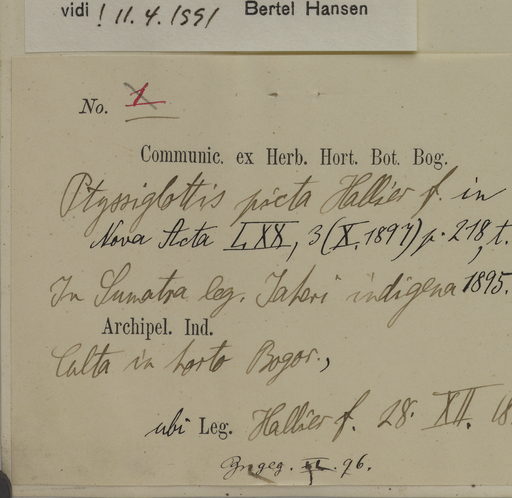 vidi ! 11.4.1991 Bertel Hansen
No. 1
Communic. ex Herb. Hort. Bot. Bog.
Ptyssiglottis picta Hallier f. in
Nova Acta LXX, 3 (X. 1897) p. 218, t.
In Sumatra leg. Jaheri indigena 1895.
Archipel. Ind.
Culta in horto Bogor.,
ubi Leg. Hallier f. 28. XII. 18
96.